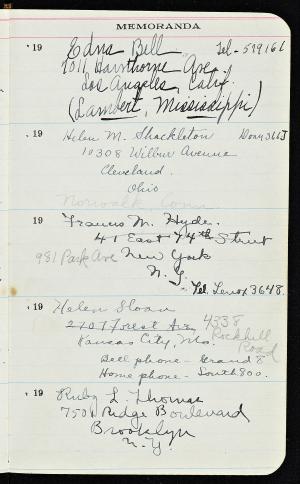 MEMORANDA
19
Edna Bell Tel - 579161
7011 Hawthorne Ave.
Los Angeles, Calif.
(Lambert, Mississippi)
19
Helen M. Shackleton
10308 Wilbur Avenue
Cleveland.
Ohio
Norwalk Conn
19
Francis M. Hyde.
41 East 74th Street
981 Park Ave New York
N.Y.
Tel. Lenox 3648.
19
Helen Sloan
2707 Forest Ave 4338
Kansas City, Mo. Rockhill
Road
Bell phone - Grand 8
Home phone - South 800.
19
Ruby L. Thomas
750 Ridge Boulevard
Brooklyn
N.Y.